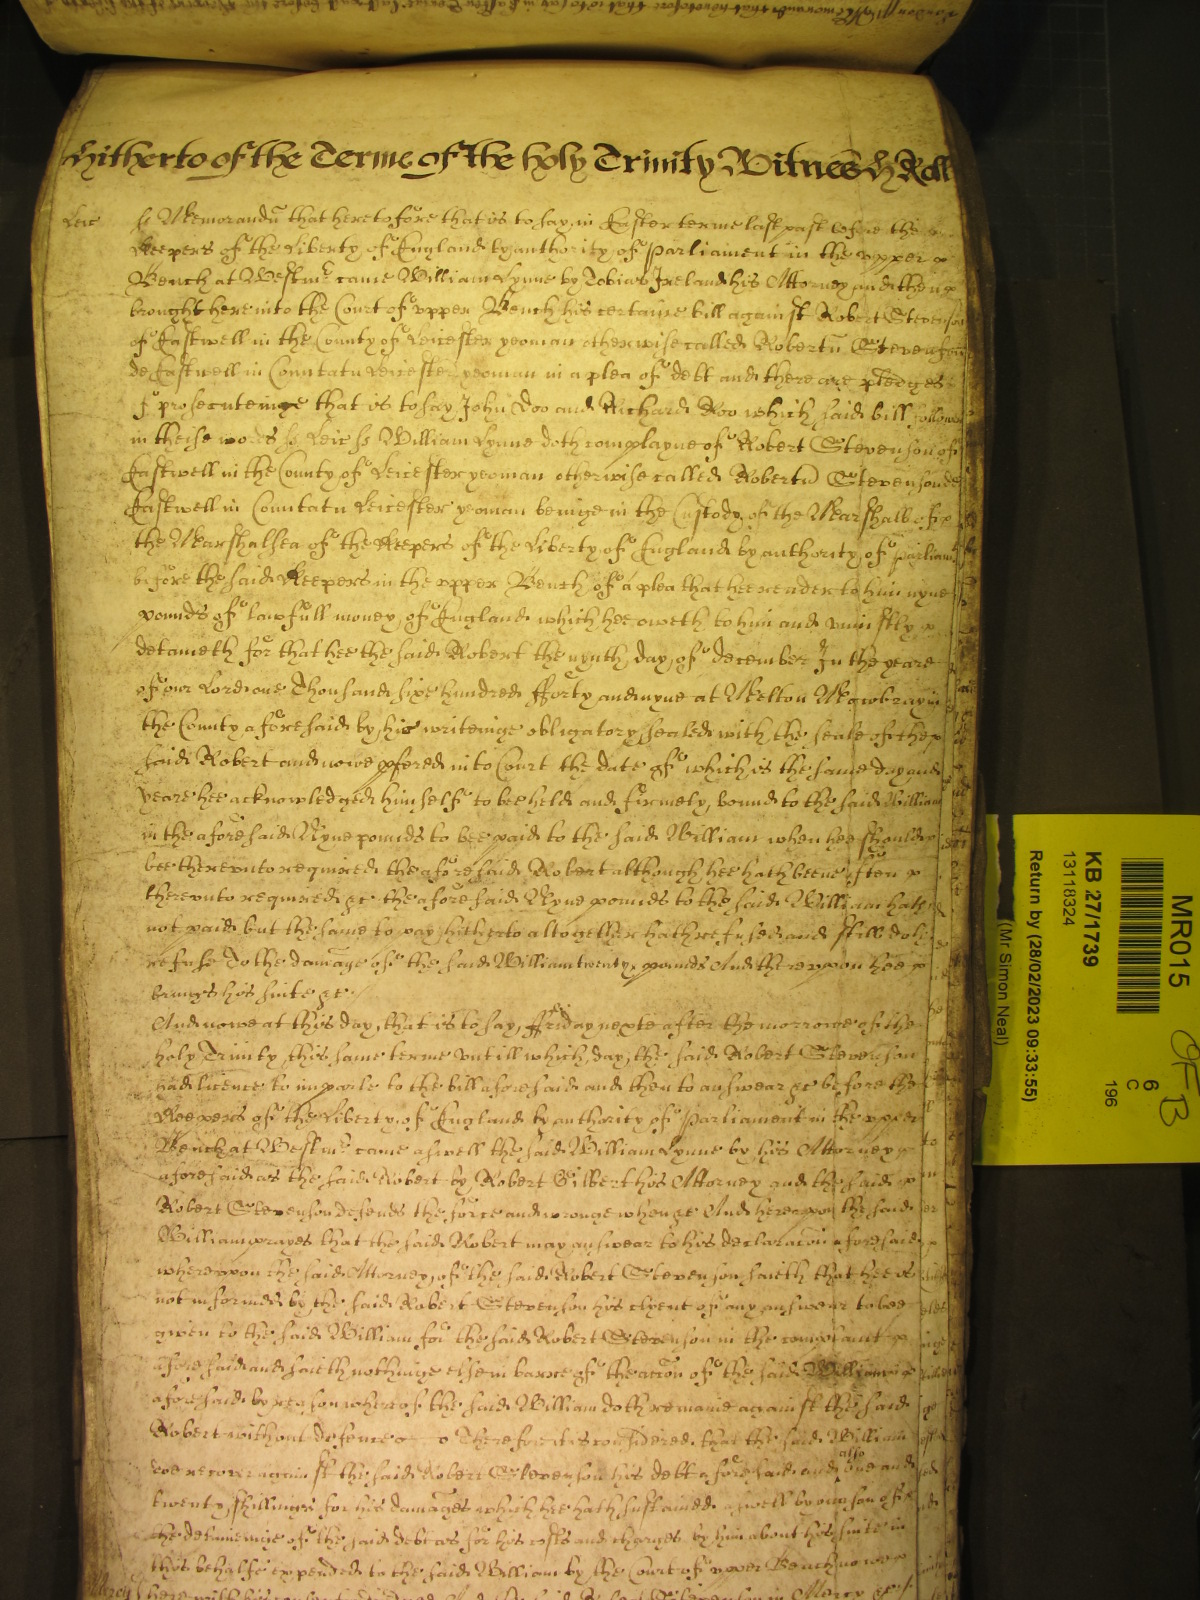 Hitherto of the Terme of the holy Trinity Witness H Roll
Leic ss Memorandu that heretofore that is to say in Easter terme last past before the
Keepers of the Liberty of England by authority of Parliament in the upper
Bench at Westmr came William Lynne by Tobias Ireland his Attorney and then
brought here into the Court of upper Bench his certaine bill against Robert Stevenson
of Eastwell in the County of Leicester yeoman otherwise called Robertu Stevenson
de Eastwell in Comitatu Leicester yeoman in a plea of debt and there are pledges
f prosecuteinge that is to say John Doo and Richard Roo which said bill followes
in theise words ss Leic ss William Lynne doth complayne of Robert Stevenson of
Eastwell in the County of Leicester yeoman otherwise called Robertu Stevenson de
Eastwell in Comitatu Leicester yeoman beinge in the Custody of the Marshall of
the Marshalsea of the Keepers of the Liberty of England by authority of Parliamt
before the said Keepers in the upper Bench of a plea that hee render to him nyne
pounds of lawfull money of England which hee oweth to him and uniustly
detaineth for that hee the said Robert the nynth day of December In the yeare
of our Lord one Thousand sixe hundred fforty and nyne at Melton Mowbray in
the County aforesaid by his writeinge obligatory sealed with the seale of the
said Robert and nowe pfered into Court the date of which is the same day and
yeare hee acknowledged himself to bee held and firmely bound to the said William
in the aforesaid Nyne pounds to bee paid to the said William when hee should
bee thereunto required the aforesaid Robert although hee hath beene often
thereunto required &c the aforesaid Nyne pounds to the said William hath
not paid but the same to pay hitherto altogether hath refused and still doth
refuse To the damage of the said William twenty pounds And thereupon hee
brings his suite &c
And nowe at this day that is to say ffriday nexte after the morrowe of the
holy Trinity this same terme untill which day the said Robert Stevenson
had licence to imparle to the bill aforesaid and then to answear &c before the
Keepers of the Liberty of England by authority of Parliament in the upper
Bench at Westmr came aswell the said William Lynne by his Attorney
aforesaid as the said Robert by Robert Gilbert his Attorney and the said
Robert Stevenson defends the force and wronge when &c And hereupon the said
William prayes that the said Robert may answear to his declaracon aforesaid
whereupon the said Attorney of the said Robert Stevenson saieth that hee is
not informed by the said Robert Stevenson his clyent of any answear to bee
given to the said William for the said Robert Stevenson in the complaint
aforesaid and saieth nothinge else in barre of the accon of the said William
aforesaid by reason whereof the said William doth remaine against the said
Robert without defence Therefore it is considered that the said William
doe recover against the said Robert Stevenson his debt aforesaid and also one and
twenty shillings for his damages which hee hath sustained aswell by occasion of
the detaineinge of the said debt as for his costs and charges by him about his suite in
this behalfe expended to the said William by the Court of upper Bench nowe
Mercy
here with his in Mercy &c
MR015
KB 27/1739
13118324
Return by (28/02/2023 09:33:55)
(Mr Simon Neal)
6
C
196